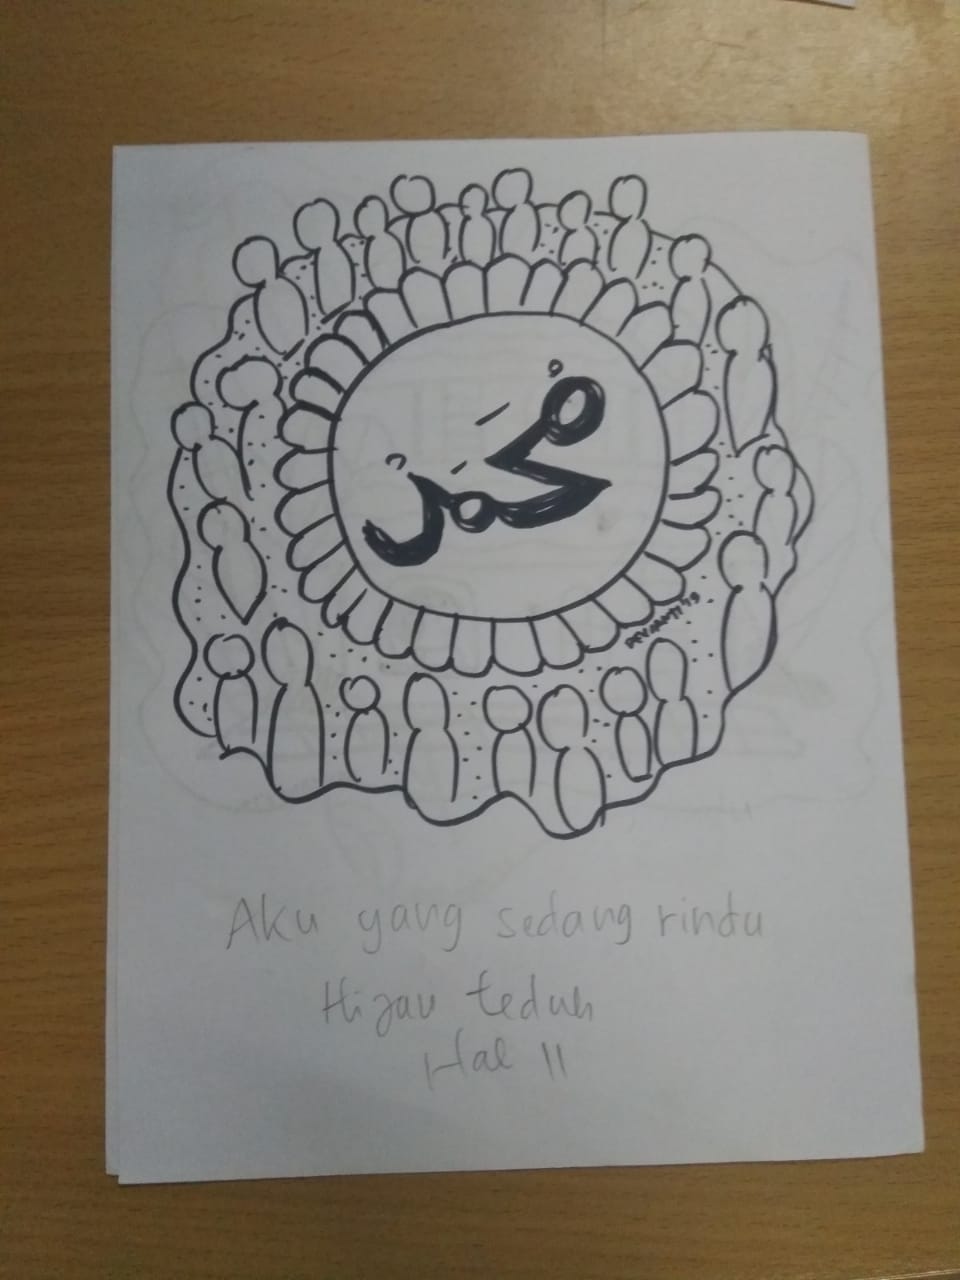 محمد
DEVIANTI '19
Aku yang sedang rindu
Hijau teduh
Hal 11